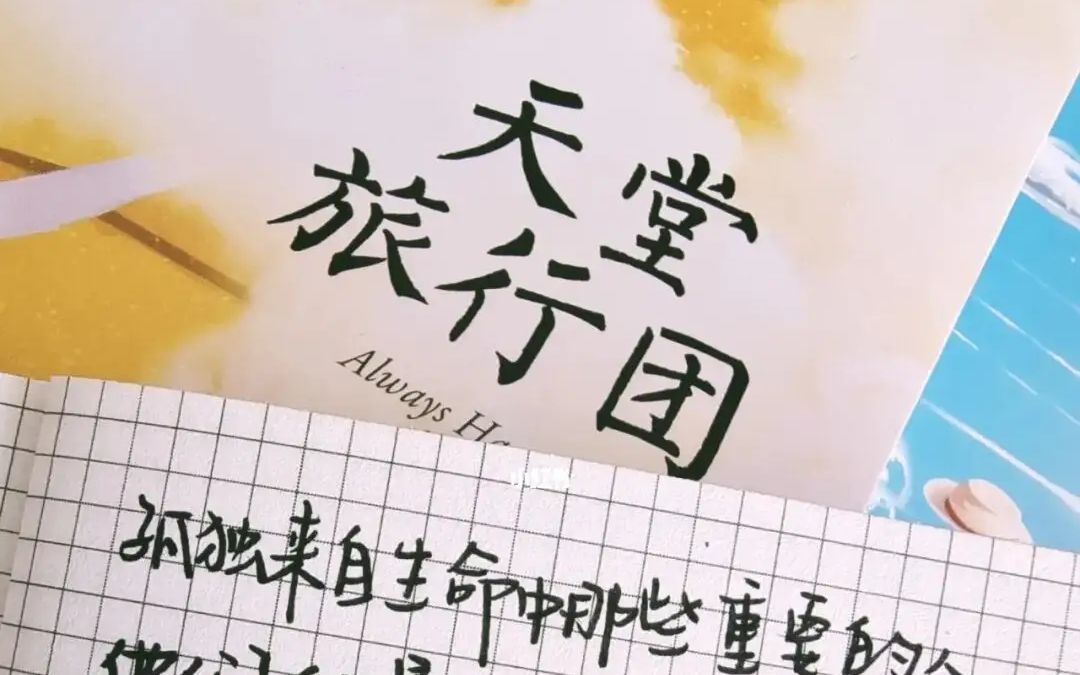 天堂
旅行团
Always Ha
孤独来自生命中那些重要的人